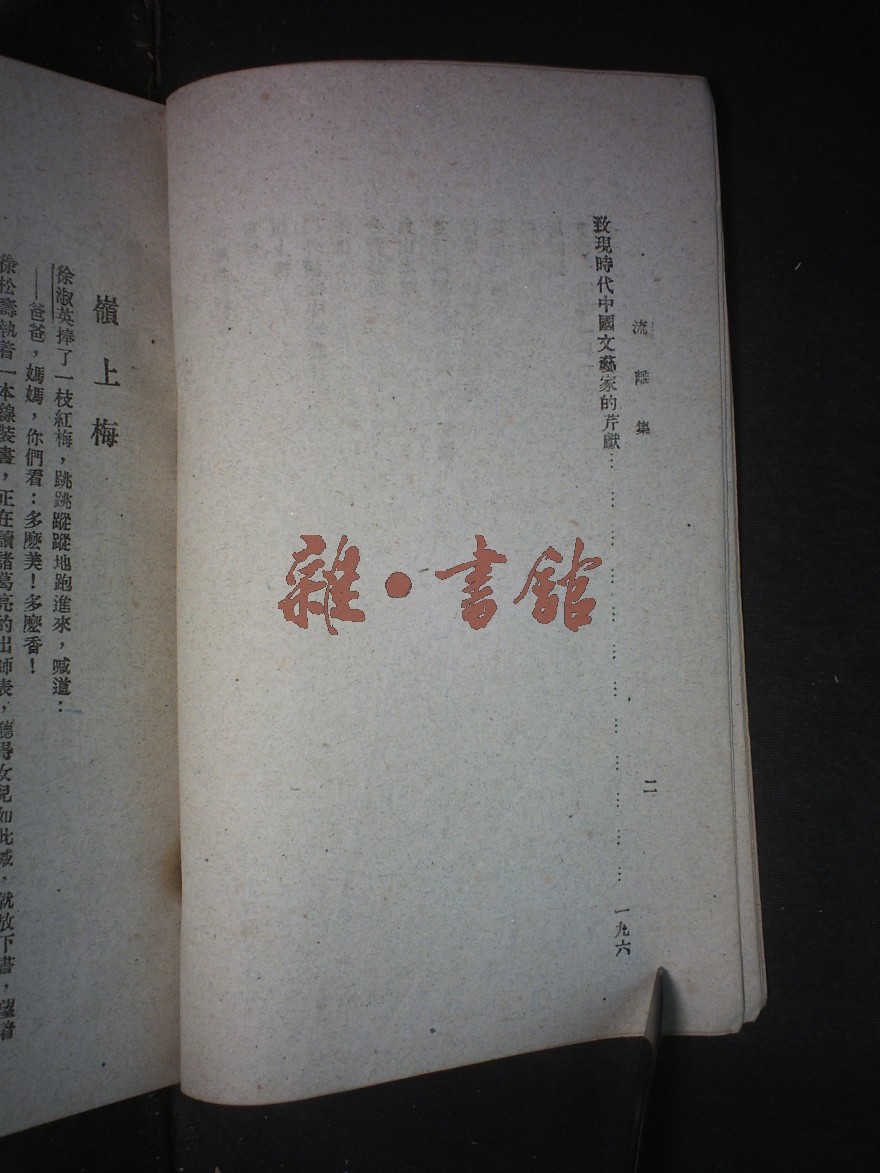 流離集
二
致現時代中國文藝家的芹獻……………………………一九六
嶺上梅
徐淑英捧了一枝紅梅，跳跳蹤蹤地跑進來，喊道：
——爸爸，媽媽，你們看：多麽美！多麽香！
徐松壽執着一本線裝書，正在讀諸葛亮的出師表，聽得女兒如此喊，就放下書，望着
雜·書館